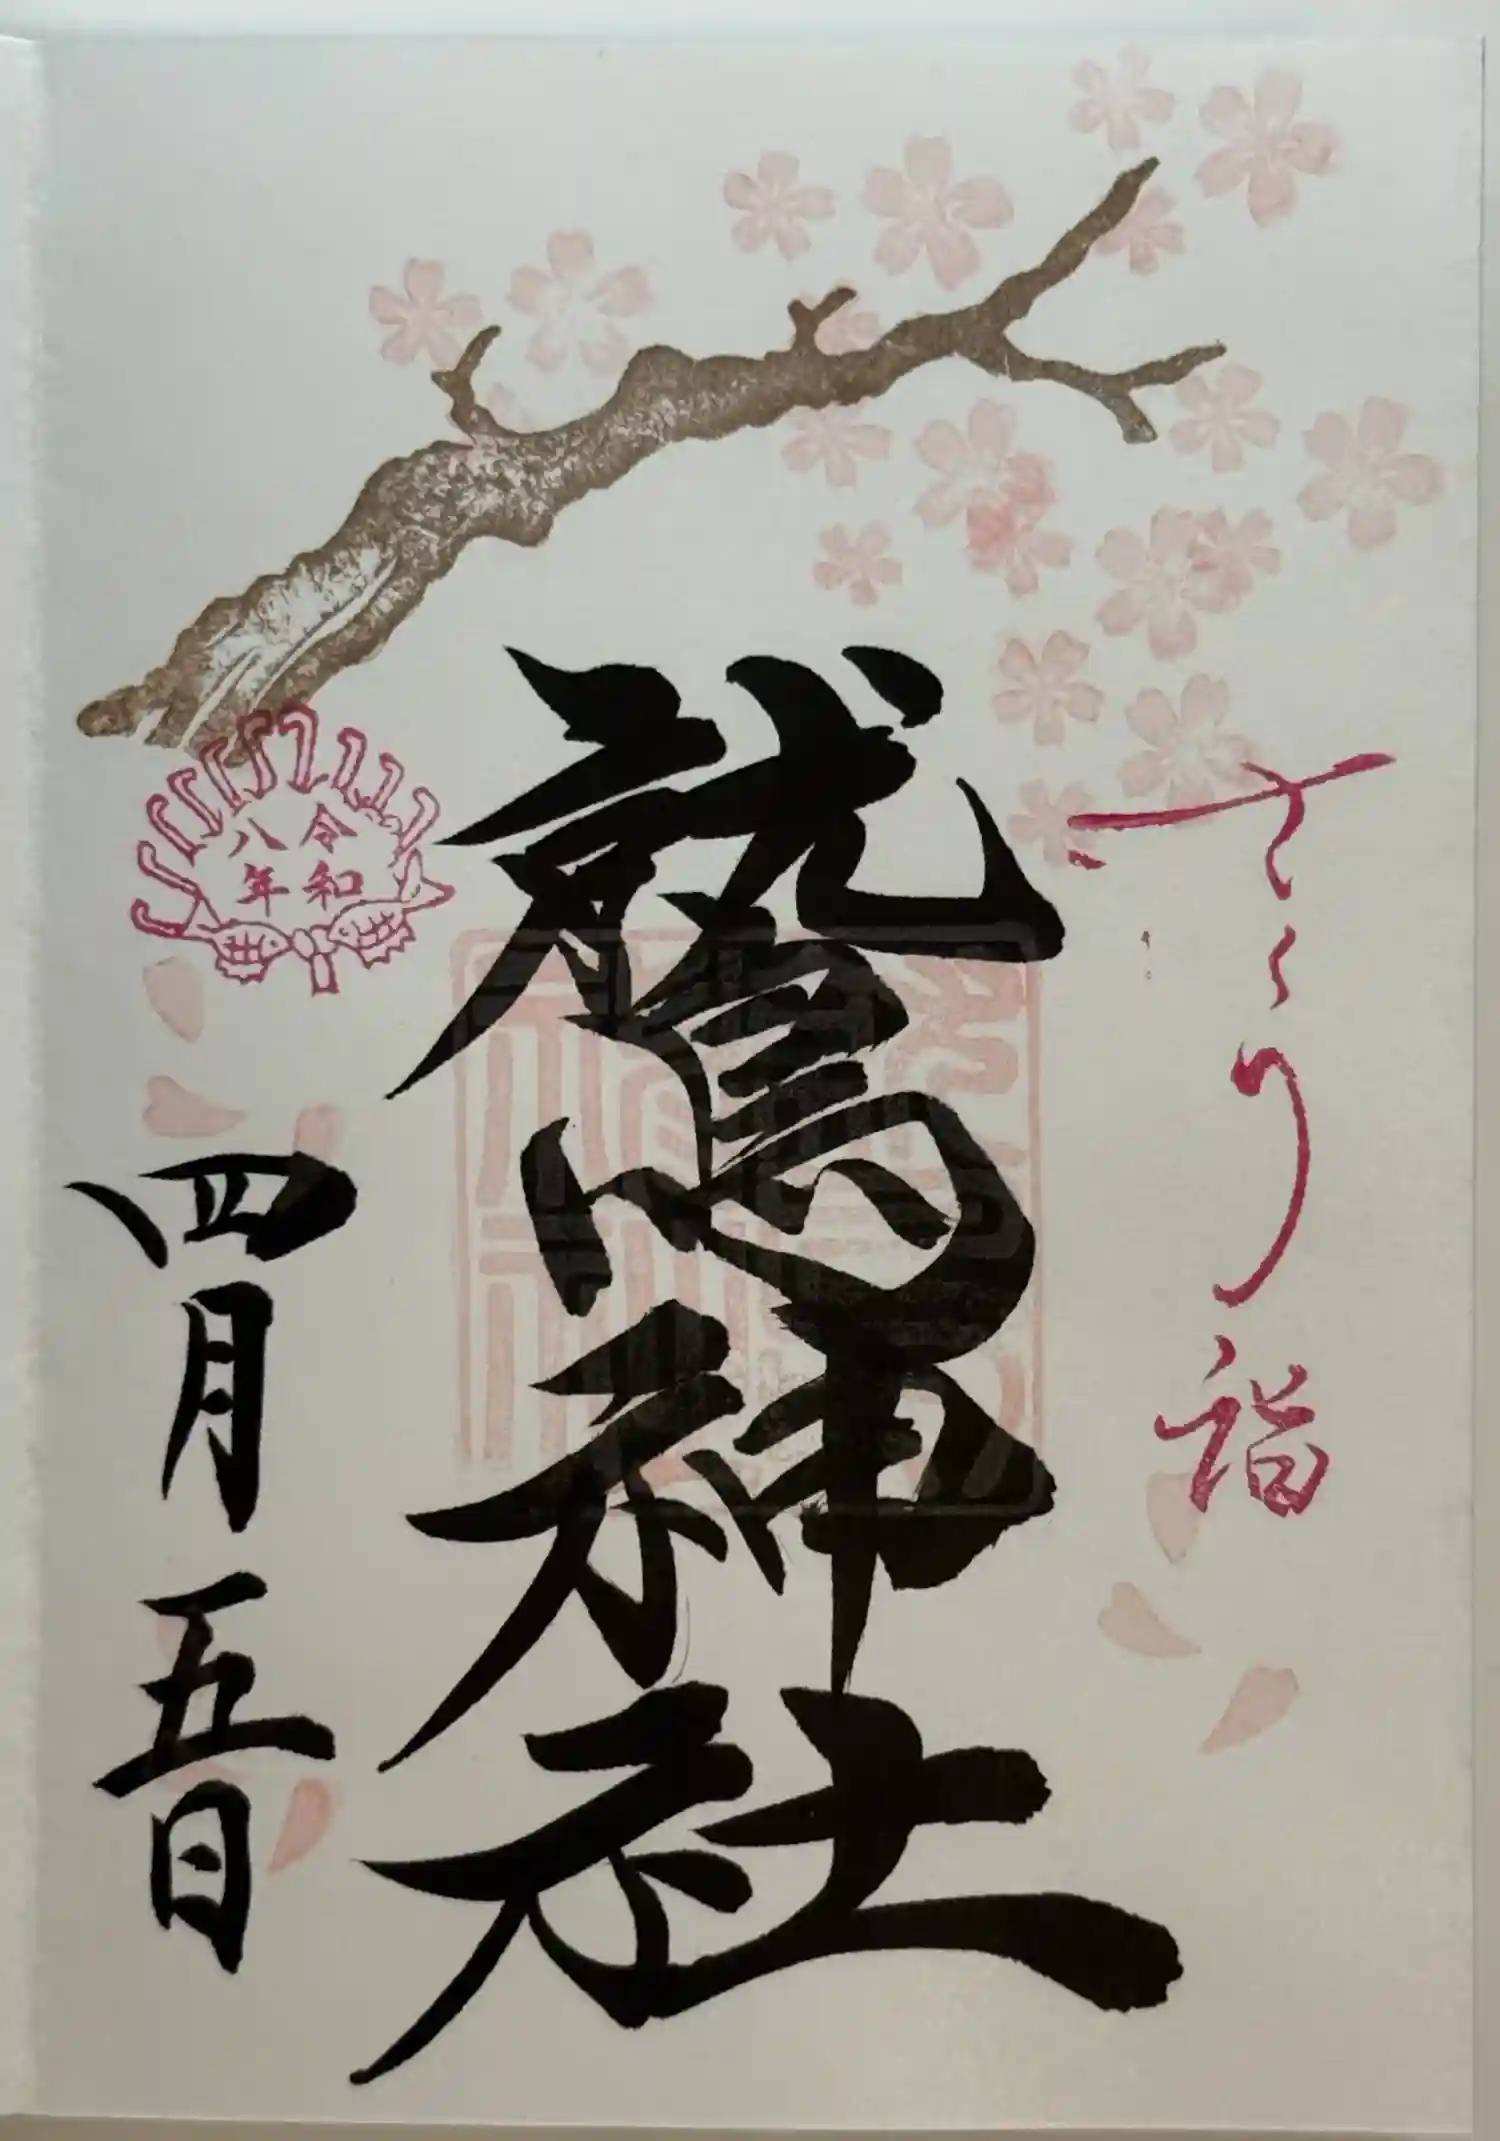 さくり詣
鷲神社
令和
八年
四月五日